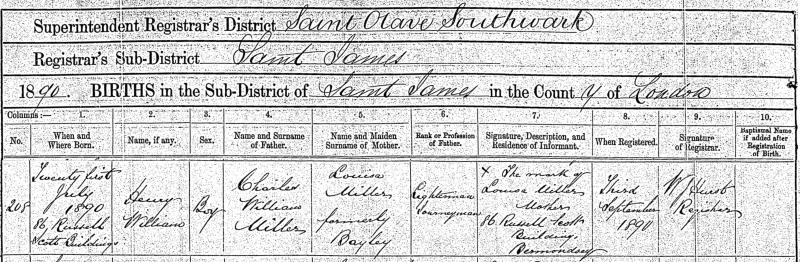 Superintendent Registrar's District Saint Olave Southwark
Registrar's Sub-District Saint James
1890. BIRTHS in the Sub-District of Saint James in the County of London
Columns:— 1. 2. 3. 4. 5. 6. 7. 8. 9. 10.
No. When and Where Born. Name, if any. Sex. Name and Surname of Father. Name and Maiden Surname of Mother. Rank or Profession of Father. Signature, Description, and Residence of Informant. When Registered. Signature of Registrar. Baptismal Name if added after Registration of Birth.
208
Twenty first
July
1890
86, Russell
Scott Buildings
Henry
William
Boy
Charles
William
Miller
Louisa
Miller
formerly
Bayley
Lighterman
Journeyman
X The mark of
Louisa Miller
Mother
86 Russell Scott
Building
Bermondsey
Third
September
1890
Registrar